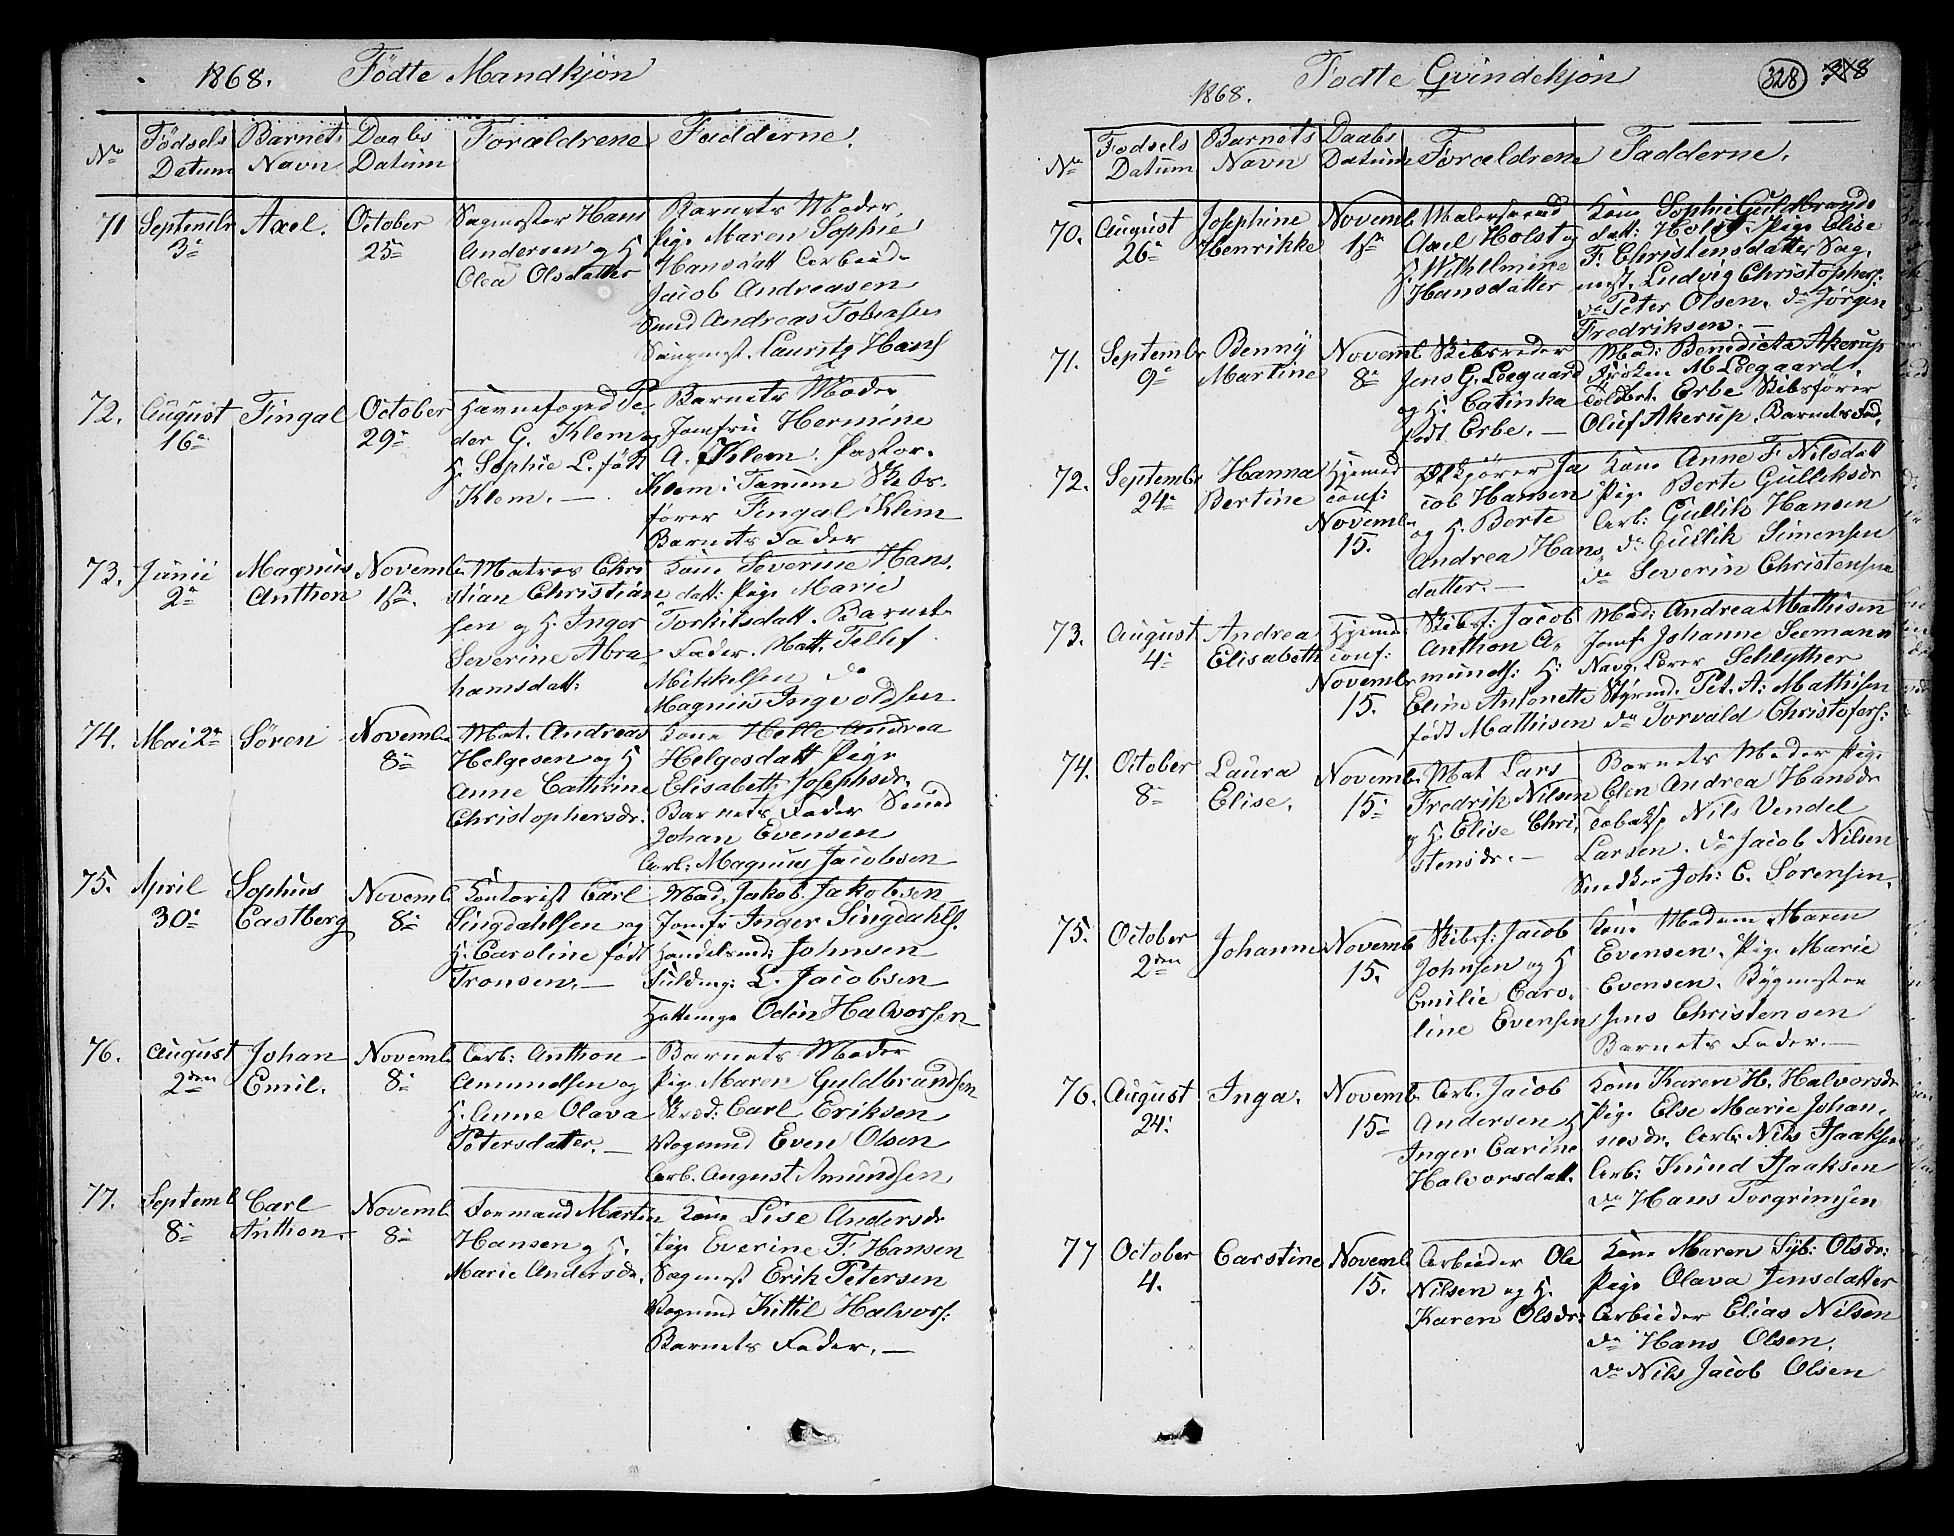 1868. Födte Mandkjön
No
Födsels Datum
Barnets Navn
Daabs Datum
Forældrene
Fadderne.
71
Septembr 3e
Axel.
October 25e
Sagmester Hans
Andersen og H
Olea Olsdatter
Barnets Moder,
Pige Maren Sophie
Hansdatt Arbeid.
Jacob Andreasen
Smed Andreas Tobiasen
Saugmest. Lauritz Hans
72.
August 16e
Fingal
October 29e
Havnefoged Pe
der G. Klem og
H. Sophie L. født
Klem. —
Barnets Moder
Jomfru Hermine
A. Klem. Pastor.
Klem i Tanum Skibs.
fører Fingal Klem
Barnets Fader
73.
Junii 2e
Magnus Anthon
Novemb. 1ste.
Matros Chri
stian Christian
sen og H. Inger
Severine Abra
hamsdatt:
Kone Severine Hans.
datt: Pige Marie
Torkilsdatt. Barnets
Fader. Matt. Tellef
Mikkelsen do
Magnus Ingvoldsen
74.
Mai 2e
Sören
Novemb. 8e
Mat. Andreas
Helgesen og H
Anne Cathrine
Christophersdr.
Kone Helle Andrea
Helgesdatt Pige
Elisabett Josephsdr.
Barnets Fader Smed
Johan Evensen
Arb: Magnus Jacobsen
75.
April 30e
Sophus Castberg
Novemb. 8e
Kontorist Carl
Singdahlsen og
H. Caroline født
Tronsen. —
Mad. Jakob. Jakobsen
Jomfr Inger Singdahls.
Handelsmd: Johnsen
Fuldmg: L. Jacobsen
Hattemgr Odin Halvorsen
76.
August 2den
Johan Emil.
Novemb. 8e
Arb: Anthon
Amundsen og
H. Anne Olava
Petersdatter. —
Barnets Moder
Pige Maren Guldbrandsen
Skræd: Carl Eriksen
Vognmd Even Olsen
Arb. August Amundsen
77.
Septemb 8e
Carl Anthon.
Novemb. 8e
Formand Martin
Hansen og H.
Marie Andersdr.
Kone Lise Andersdr
Pige Everine F. Hansen
Sagmest Erik Petersen
Vognmd Kittil Halvors:
Barnets Fader. —
1868. Födte Qvindekjön
328 318
No
Fodsels Datum
Barnets Navn
Daabs Datum
Forældrene
Fadderne.
70.
August 26e
Josephine Henrikke
Novemb. 1ste
Malersvend
Axel Holst og
H. Wilhelmine
Hansdatter
Kone Sophie Guldbrands
datt: Holst: Pige Elise
F. Christensdatter Sag.
mest. Ludvig Christophers:
do Peter Olsen. do Jørgen
Fredriksen. —
71.
Septembr 9e
Benny Martine
Novemb. 8e
Skibsreder
Jens G. Loegaard
og H. Catinka
født Erbe. —
Mad: Benedicta Akerup
Frøken M Löegaard.
Toldbet. Erbe Skibsfører
Oluf Akerup. Barnets Fad.
72.
Septembr 24e
Hanna Bertine
Hjemmed conf: Novemb. 15.
Ja
cob Hansen
og H. Berte
Andrea Hans.
datter. —
Kone Anne F. Nilsdatt
Pige Berte Gulliksdr
Arb: Gullik Hansen
do Gullik Simensen
do Severin Christensen
73.
August 4e
Andrea Elisabeth
Hjemmd: conf: Novemb. 15.
Skibsf: Jacob
Anthon A.
munds: H:
Eline Antonette
født Mathisen
Mad: Andrea Mathisen
Jomf. Johanne Seemann
Navg. Lærer Schlyther
Styrmd. Pet. A: Mathisen
do Torvald Christofers:
74.
October 8e
Laura Elise.
Novemb. 15e
Mat Lars
Fredrik Nilsen
og H. Elise Chri.
stensdr. —
Barnets Moder Pige
Elen Andrea Hansdr
Tobaksp Nils Vendel
Larsen. do Jacob Nilsen
Snedker Joh: C. Sørensen.
75.
October 2den
Johanne
Novemb 15.
Skibsf: Jacob
Johnsen og H
Emilie Caro.
line Evensen
Kone Madam Maren
Evensen. Pige Marie
Evensen. Bygmester
Jens Christensen
Barnets Fader. —
76.
August 24e
Inga.
Novemb. 15e
Arb. Jacob
Andersen H
Inger Carine
Halvorsdatt.
Kone Karen H. Halvorsdr
Pige Else Marie Johan.
nesdr. Arb: Nils Isaaksen
Arb: Knud Isaaksen
do Hans Torgrimsen
77
October 4.
Carstine
Novemb. 15.
Arbeider Ole
Nilsen og H.
Karen Olsdr:
Kone Maren Syb: Olsdr:
Pige Olava Jensdatter
Arbeider Elias Nilsen
do Hans Olsen.
do Nils Jacob Olsen